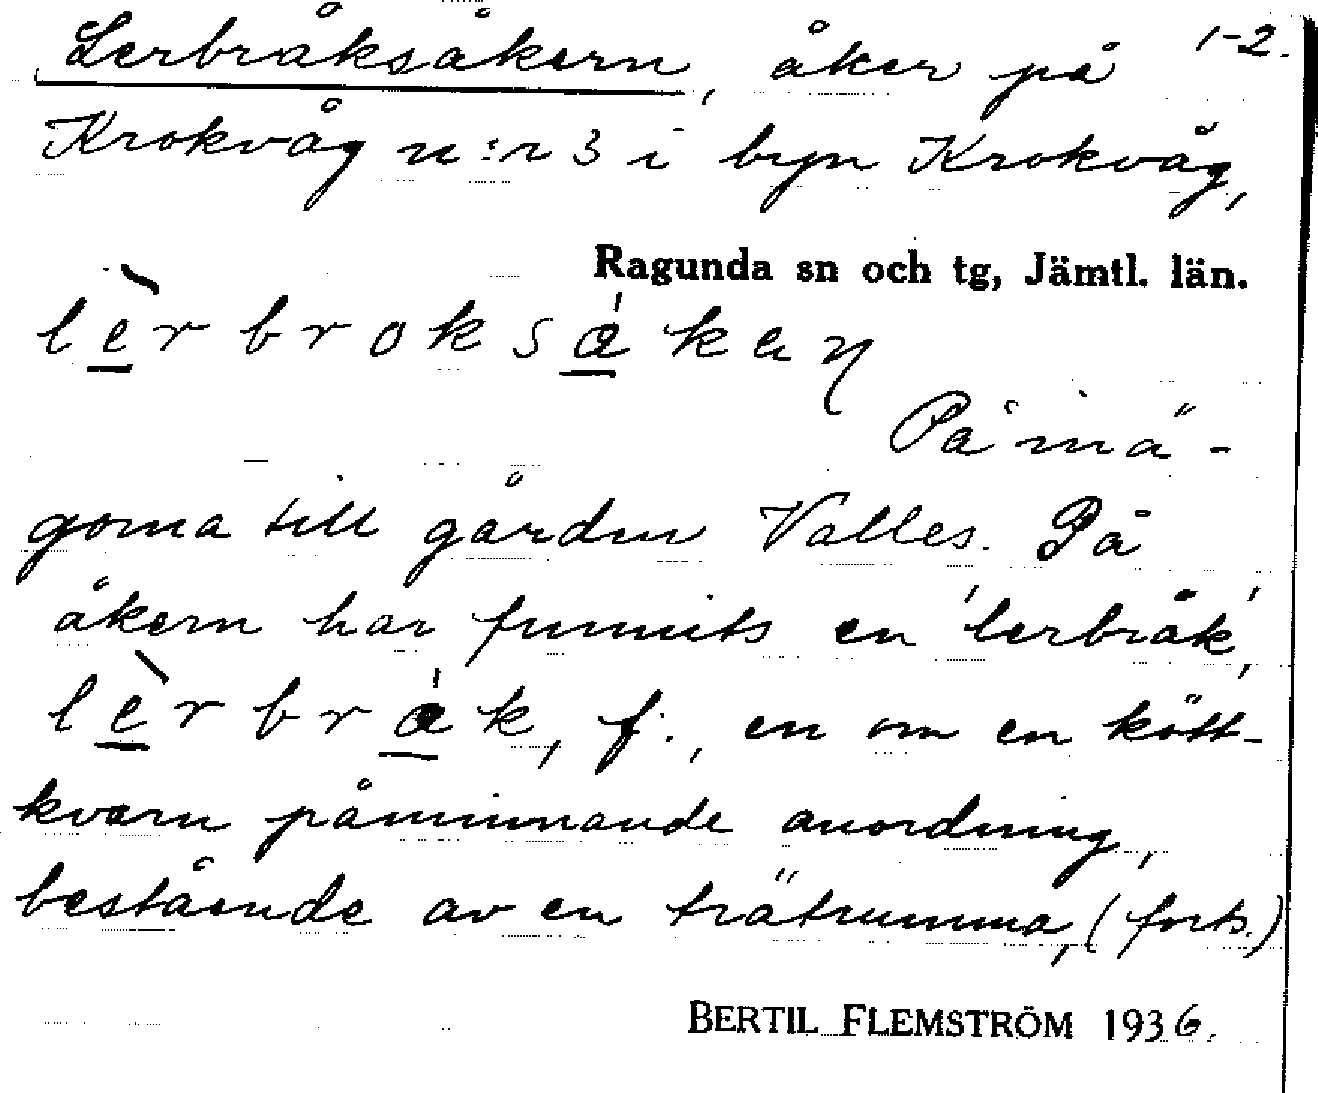 Lerbråksåkern, åker på 1-2.
Krokvåg n:r 3 i byn Krokvåg,
Ragunda sn och tg, Jämtl. län.
lèrbroksákaŋ
På inä-
gorna till gården Valles. På
åkern har funnits en 'lerbråk',
lèrbrák, f., en om en kött-
kvarn påminnande anordning,
bestående av en trätrumma, (forts.)
BERTIL FLEMSTRÖM 1936.